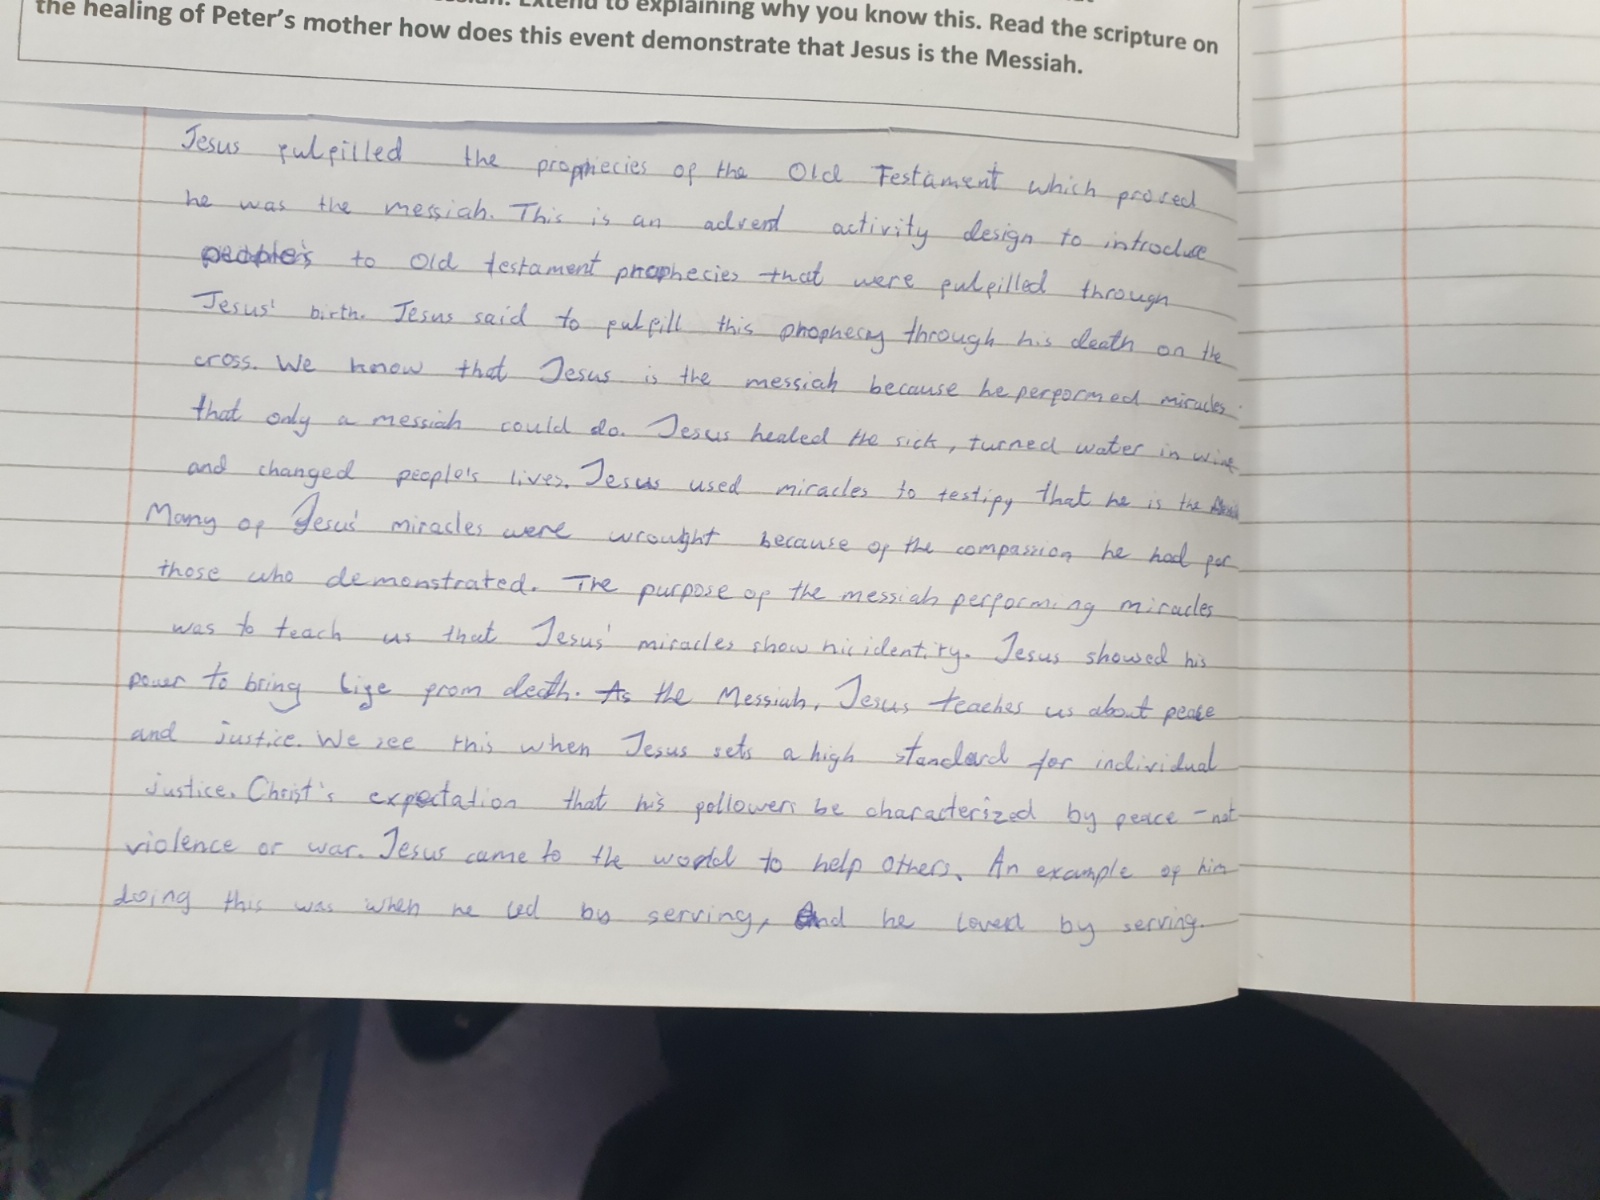 Extend to explaining why you know this. Read the scripture on
the healing of Peter's mother how does this event demonstrate that Jesus is the Messiah.
Jesus fulfilled the prophiecies of the Old Testament which proved
he was the messiah. This is an advent activity design to introduce
people's to Old testament prophecies that were fulfilled through
Jesus' birth. Jesus said to fulfill this phophecy through his death on the
cross. We know that Jesus is the messiah because he performed miracles
that only a messiah could do. Jesus healed the sick, turned water in wine
and changed people's lives. Jesus used miracles to testify that he is the
Many of Jesus' miracles were wrought because of the compassion he had for
those who demonstrated. The purpose of the messiah performing miracles
was to teach us that Jesus' miracles show his identity. Jesus showed his
power to bring life from death. As the Messiah, Jesus teaches us about peace
and justice. We see this when Jesus sets a high standard for individual
justice. Christ's expectation that his followers be characterized by peace - not
violence or war. Jesus came to the world to help others. An example of him
doing this was when he led by serving, and he loved by serving.